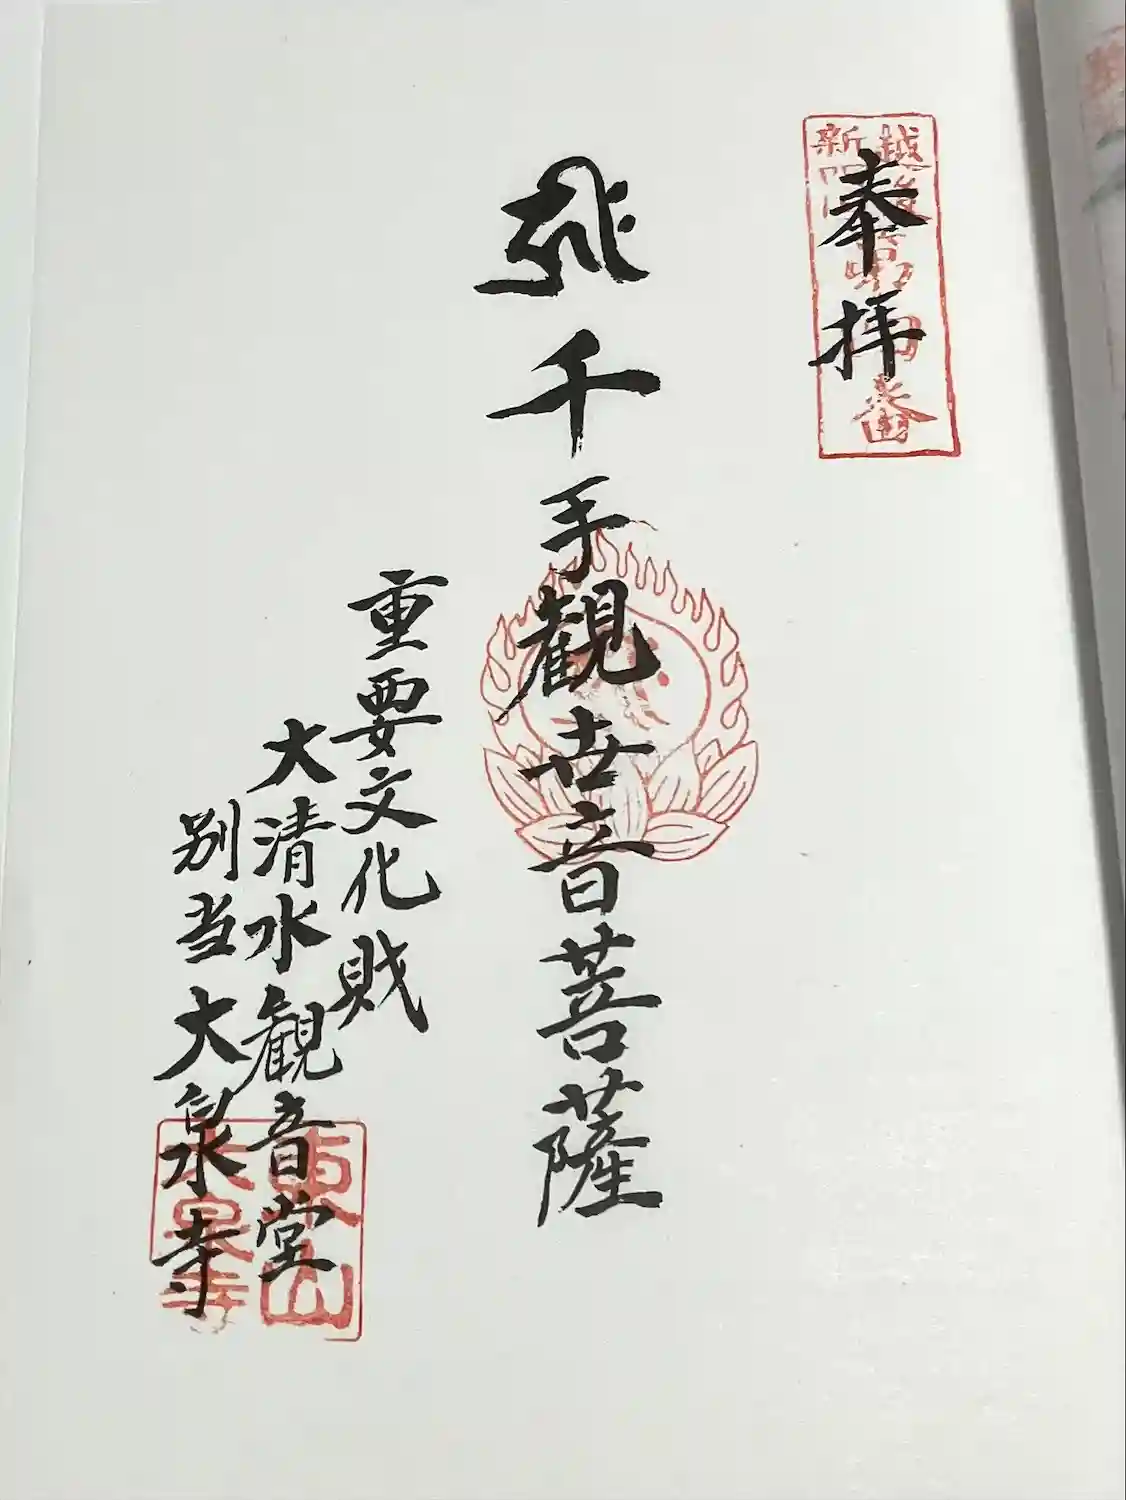 奉拝
千手観世音菩薩
重要文化財
大清水観音堂
別当大泉寺
東山
大泉寺